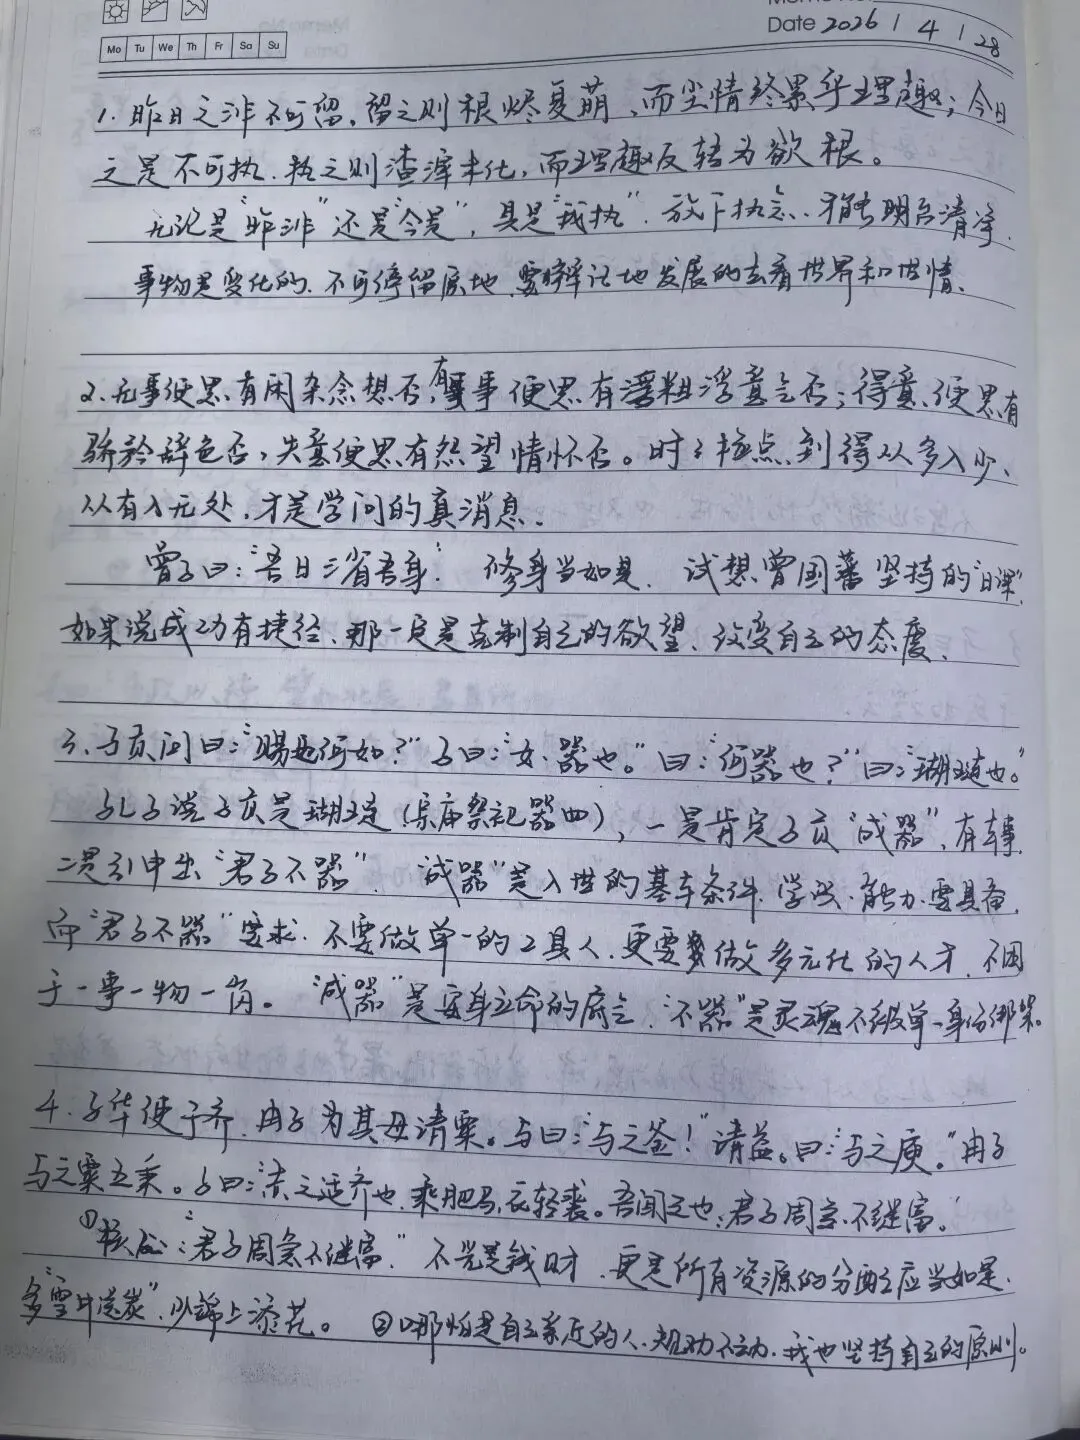 Memo No.
Date 2026 / 4 / 28
Mo Tu We Th Fr Sa Su
1. 昨日之非不可留,留之则根烬复萌,而尘情终累乎理趣;今日
之是不可执,执之则渣滓未化,而理趣反转为欲根。
无论是"昨非"还是"今是",具是"我执",放下执念,才能明白清净,
事物是变化的,不可停留原地,要辩证地发展的去看世界和世情,
2. 无事便思有闲杂念想否,有事便思有粗浮意气否;得意便思有
骄矜辞色否,失意便思有怨望情怀否。时时检点,到得从多入少、
从有入无处,才是学问的真消息,
曾子曰:"吾日三省吾身" 修身当如是,试想曾国藩坚持的"日课"
如果说成功有捷径,那一定是克制自己的欲望,改变自己的态度,
3、子贡问曰:"赐也何如?"子曰:"女,器也。"曰:"何器也?"曰:"瑚琏也。"
孔子说子贡是瑚琏(宗庙祭祀器皿),一是肯定子贡"成器",有专事,
二是引申出"君子不器","成器"是入世的基本条件,学识、能力要具备,
而"君子不器"要求,不要做单一的工具人,更要做多元化的人才,不困
于一事一物一岗。"成器"是安身立命的底气,"不器"是灵魂不被单一身份绑架。
4. 子华使于齐,冉子为其母请粟。与曰:"与之釜!"请益。曰:"与之庾。"冉子
与之粟五秉。子曰:"赤之适齐也,乘肥马,衣轻裘。吾闻之也,君子周急不继富。
①核心:"君子周急不继富"不光是钱财,更是所有资源的分配应当如是,
多"雪中送炭",少锦上添花。 ②哪怕是自己亲近的人,规劝不动,我也坚持自己的原则。